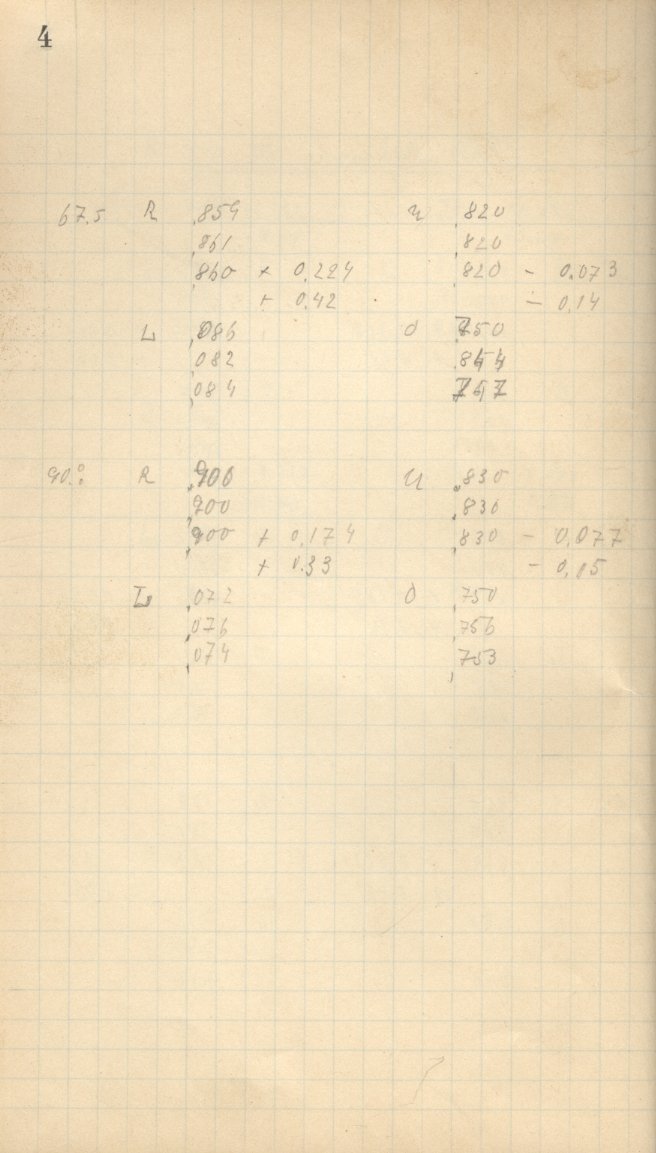 4
67.5 R ,859 u ,820
,861 ,820
,860 + 0.224 ,820 - 0.073
+ 0.42 - 0.14
L ,086 d ,750
,082 ,744
,084 ,747
90.° R ,900 u ,830
,900 ,830
,900 + 0.174 ,830 - 0.077
+ 0.33 - 0.15
L ,072 d ,750
,076 ,756
,074 ,753